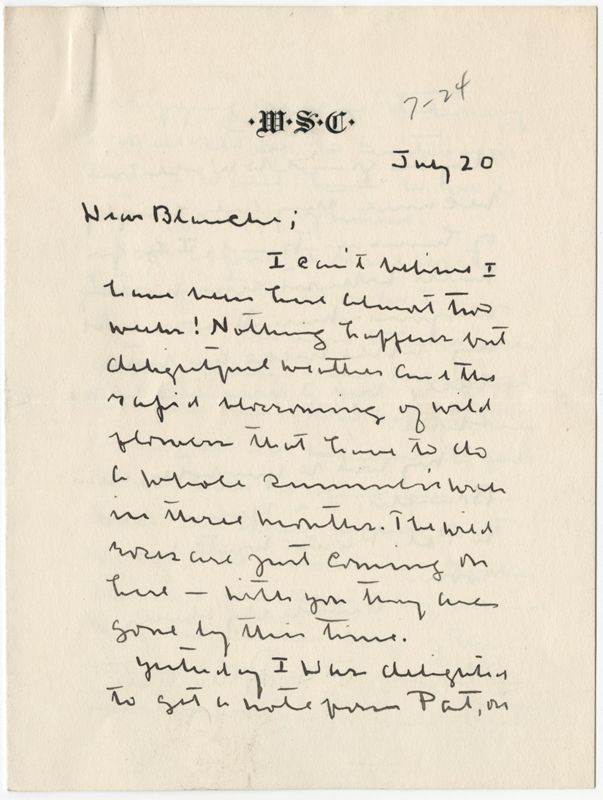 7-24
·W·S·C·
July 20
Dear Blanche;
I can't believe I
have been here almost two
weeks! Nothing happens but
delightful weather and the
rapid blossoming of wild
flowers that have to do
a whole summer's work
in three months. The wild
roses are just coming on
here — with you they are
gone by this time.
Yesterday I was delighted
to get a note from Pat, on